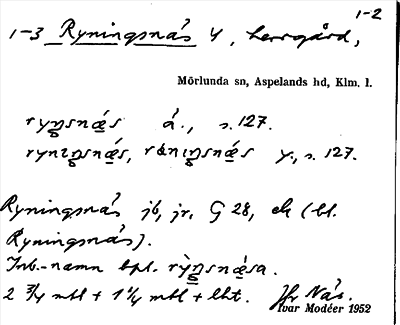 1-2
1-3 Ryningsnäs 4, herrgård,
Mörlunda sn, Aspelands hd, Klm. l.
ryŋsnǽs á., s. 127.
rynıŋsnǽs, rænıŋsnǽs y., s. 127.
Ryningsnäs jb, jr, G 28, ek (bl.
Ryningsnäs).
Inb.-namn bpl. rỳŋsnæ̀sa.
2 3/4 mtl + 1 1/4 mtl + lht. Jfr Näs.
Ivar Modéer 1952